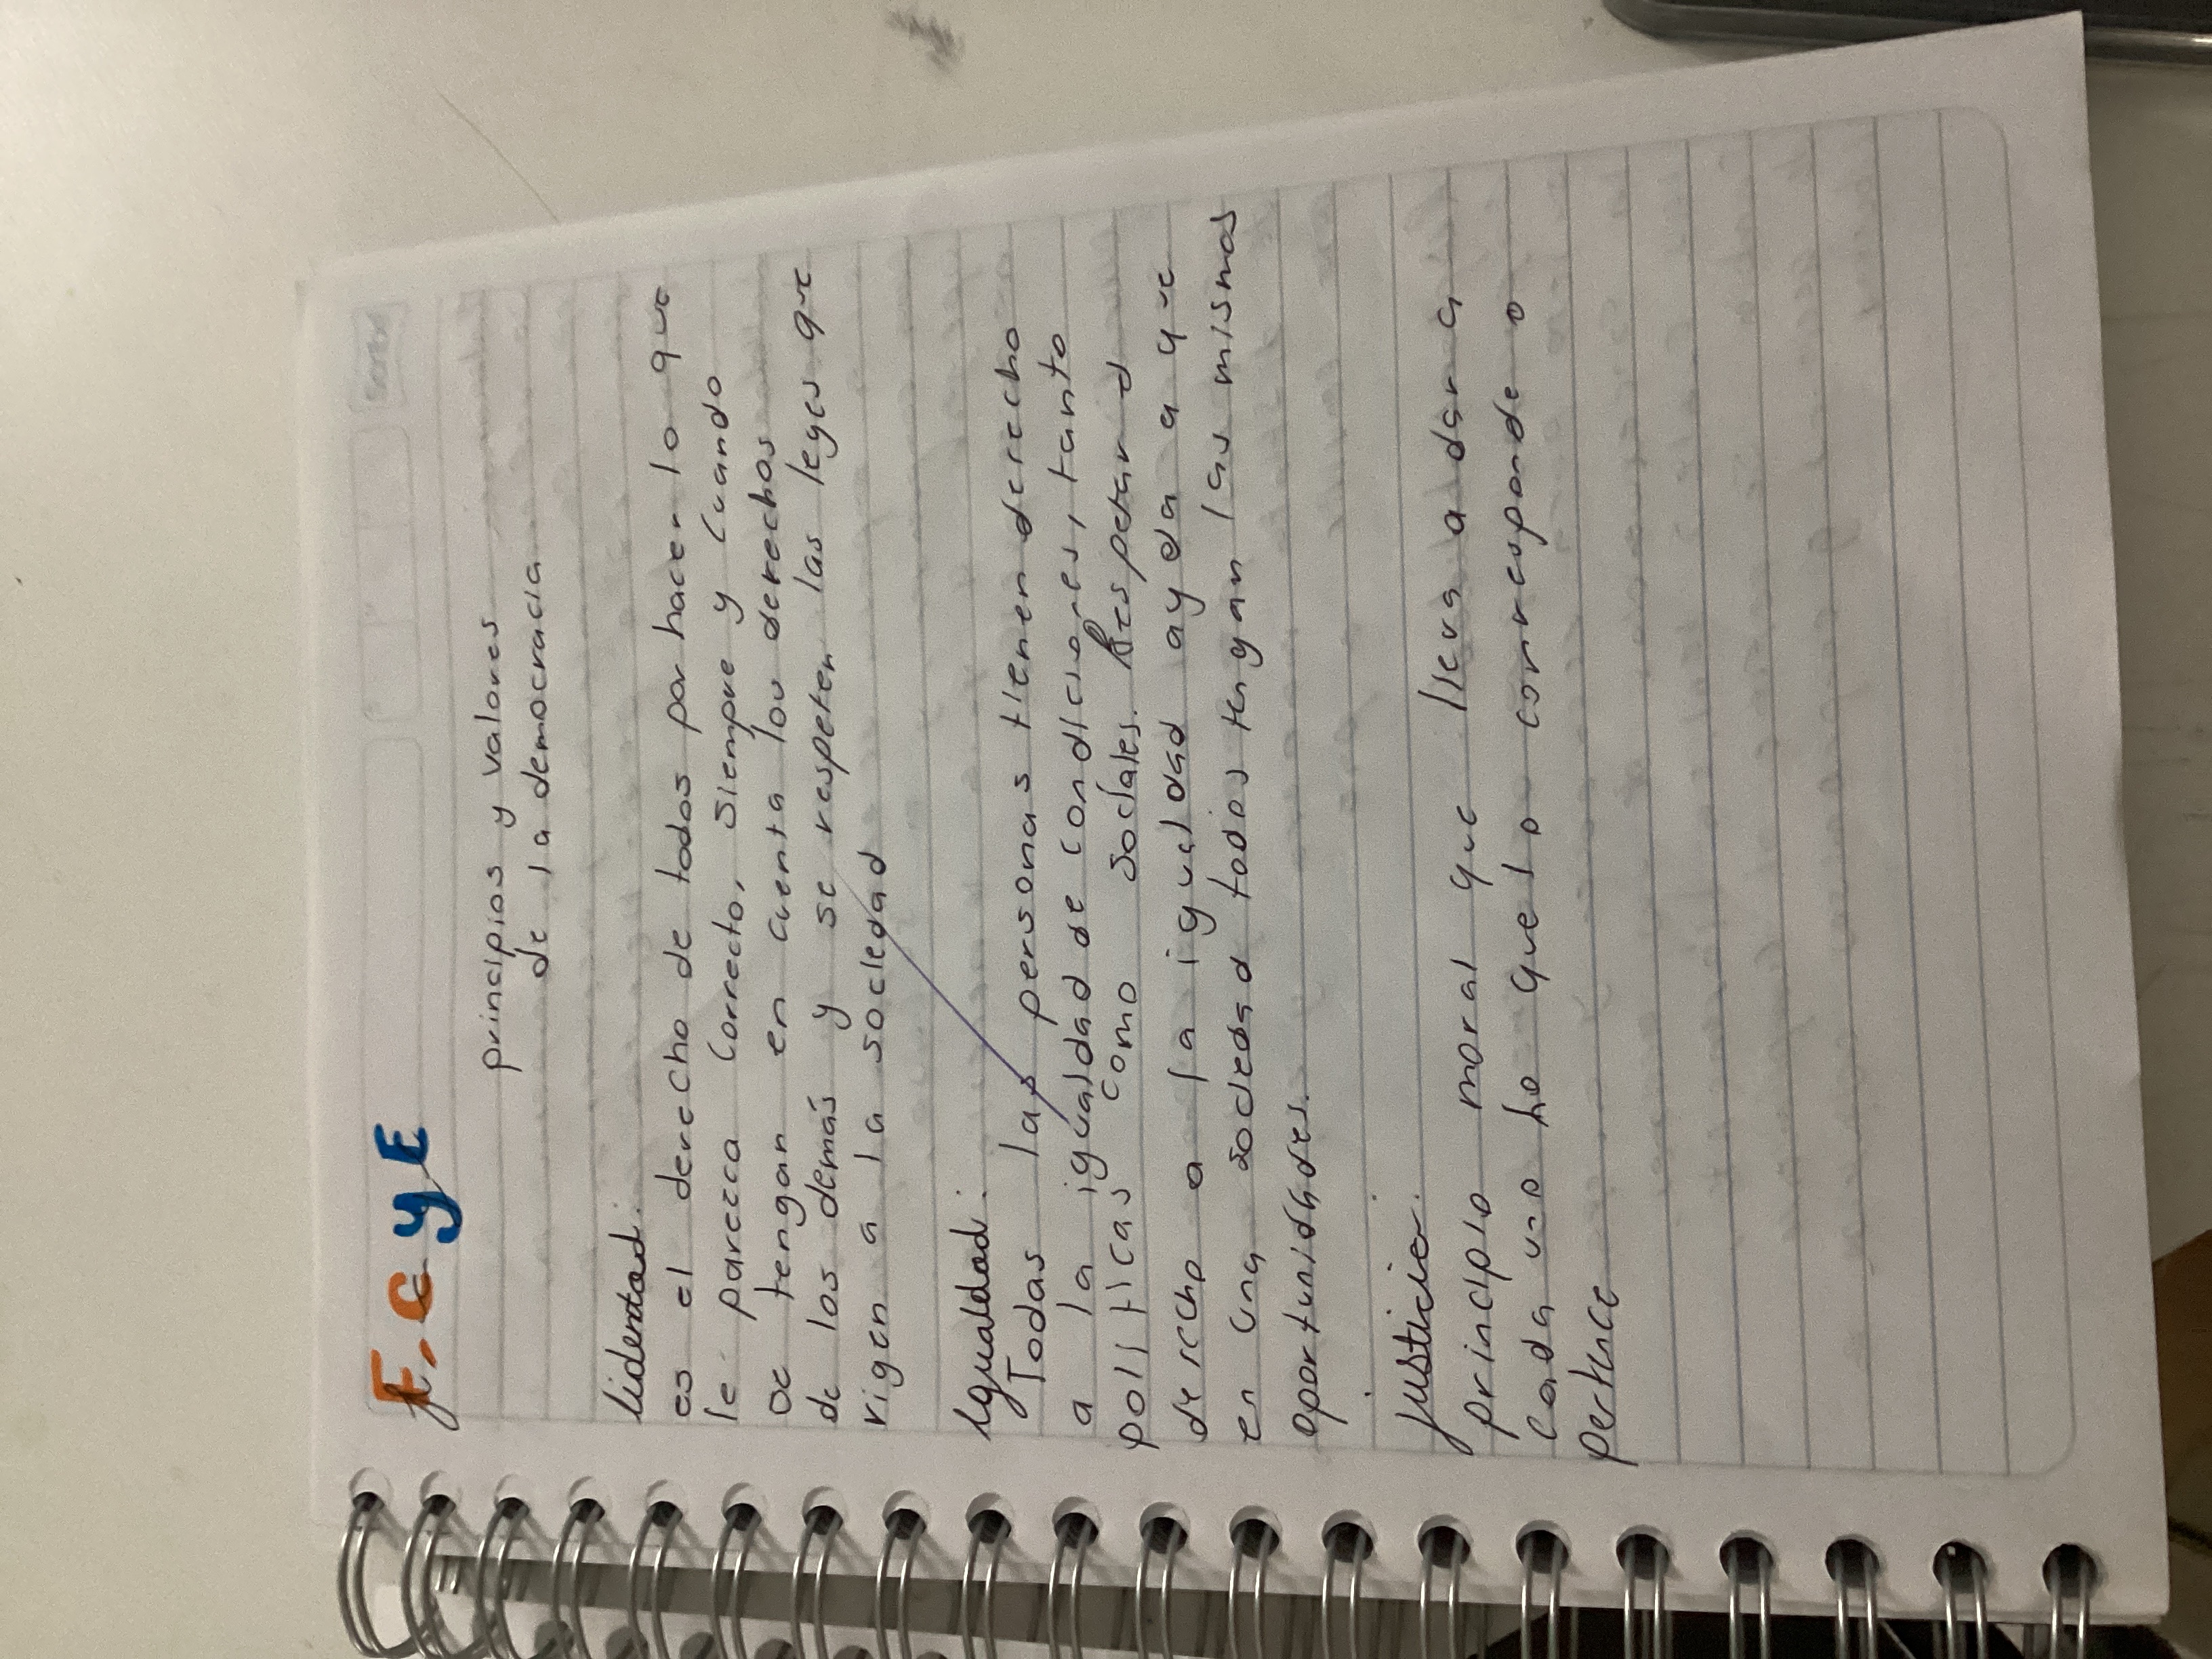 F, C y E
principios y valores
de la democracia
libertad:
es el derecho de todos por hacer lo que
le parezca correcto, siempre y cuando
se tengan en cuenta los derechos
de los demás y se respeten las leyes que
rigen a la sociedad
Igualdad:
Todas las personas tienen derecho
a la igualdad de condiciones, tanto
políticas como sociales. Respetar el
derecho a la igualdad ayuda a que
en una sociedad todos tengan las mismas
oportunidades.
justicia:
principio moral que lleva a dar a
cada uno lo que lo corresponde o
pertence